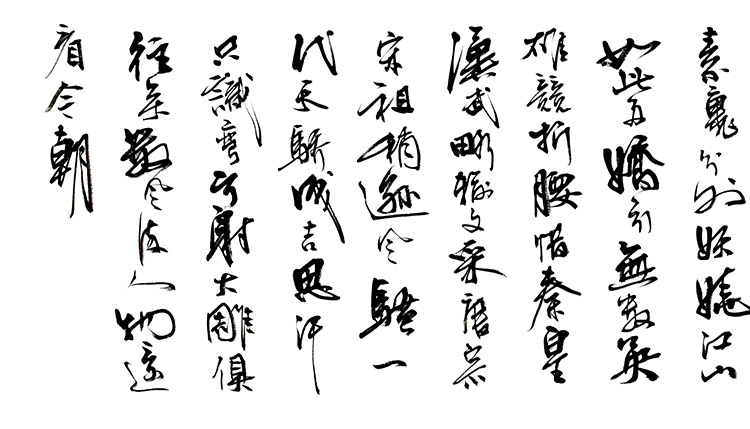 素裹分外妖嬈江山
如此多嬌引無數英
雄競折腰惜秦皇
漢武略輸文采唐宗
宋祖稍遜風騷一
代天驕成吉思汗
只識彎弓射大雕俱
往矣數風流人物還
看今朝